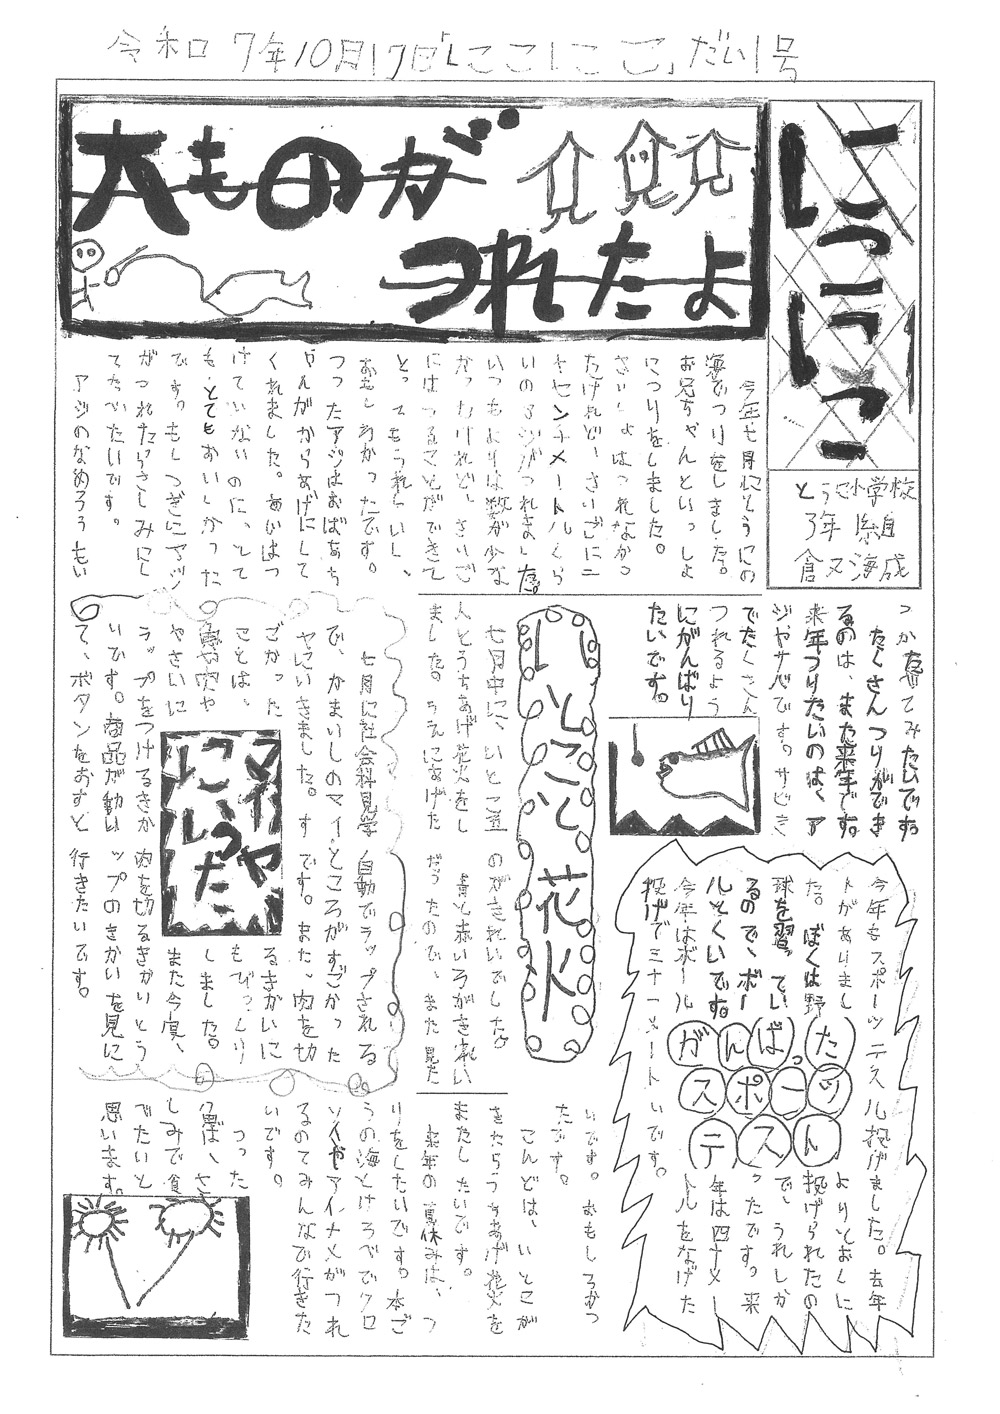 令和7年10月17日「にこにこ」だい1号
にこにこ
とうに小学校
3年
倉又海成
大ものが
つれたよ
今年七月にとうにの
海でつりをしました。
お兄ちゃんといっしょ
につりをしました。
さいしょはつれなかっ
たけれど、さいごに二
十センチメートルくら
いのアジがつれました。
いつもよりは数が少な
かったけれど、さいご
にはつることができて
とってもうれしいし、
おもしろかったです。
つったアジはおばあち
ゃんがからあげにして
くれました。あじはつ
けていないのに、とて
も、とてもおいしかった
です。もしつぎにアジ
がつれたらさしみにし
てたべたいです。
アジのなめろうもい
つか食べてみたいです。
たくさんつりができ
るのは、また来年です。
来年つりたいのは、ア
ジやサバです。サビき
でたくさん
つれるよう
にがんばり
たいです。
がんばった
スポーツ
テスト
今年もスポーツテス
トがありまし
た。ぼくは野
球を習ってい
るので、ボー
ルとくいです。
今年はボール
投げで三十一メート
ル投げました。去年
よりとおくに
投げられたの
で、うれしか
ったです。来
年は四十メー
トルをなげた
いです。
いとこと花火
七月中に、いとこ三
人とうちあげ花火をし
ました。うえにあげた
のがきれいでした。
青と赤いろがきれい
だったので、また見た
いです。おもしろかっ
たです。
こんどは、いとこが
きたらうちあげ花火を
またしたいです。
来年の夏休みは、つ
りをしたいです。本ご
うの海とけろべでクロ
ソイやアイナメがつれ
るのでみんなで行きた
いです。
つった
は、さ
しみで食
でたいと
思います。
マイヤ
にいった
七月に社会科見学
で、かまいしのマイ
ヤにいきました。す
ごかった
ことは、
やさいに
ラップをつけるきか
いです。商品が動い
て、ボタンをおすと
自動でラップされる
ところがすごかった
です。また、肉を切
るきかいに
もびっくり
しました。
また今度、
肉を切るきかいとラ
ップのきかいを見に
行きたいです。